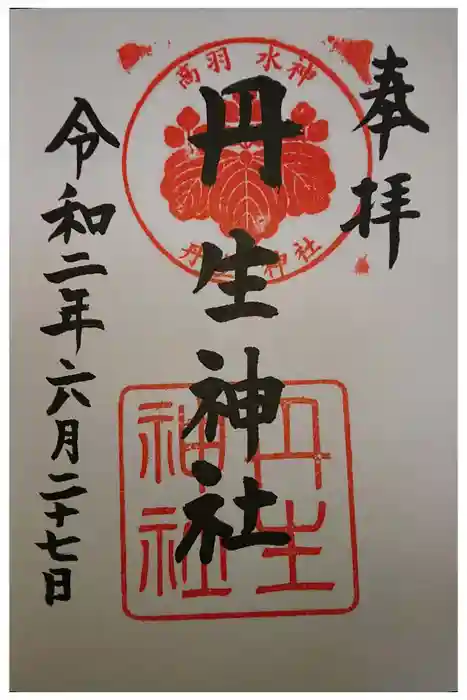 奉拝
高羽 水神
丹生神社
丹生神社
丹生神社
令和二年六月二十七日